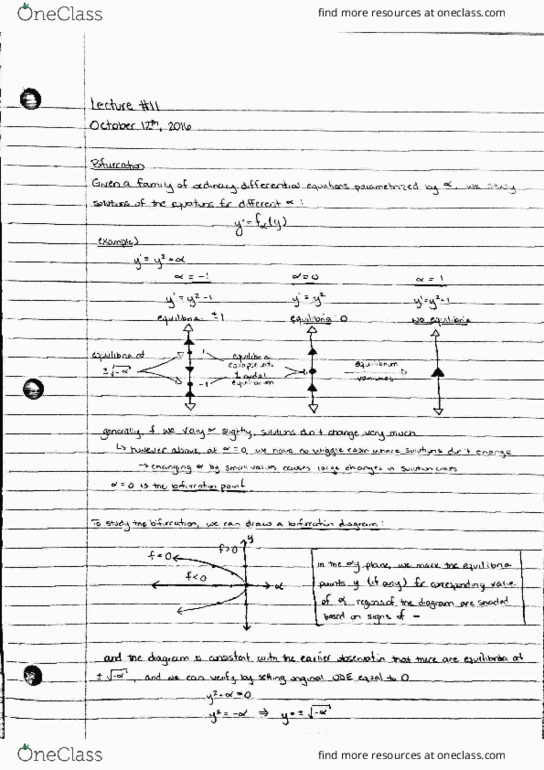 OneClass
find more resources at oneclass.com
Lecture #11
October 12th, 2016
Bifurcation
Given a family of ordinary differential equations parametrized by α, we study
solutions of the equations for different α:
y' = fα(y)
example)
y' = y² + α
α = -1 α = 0 α = 1
y' = y² - 1 y' = y² y' = y² + 1
equilibria ±1 equilibria 0 no equilibria
equilibria at 1 equilibria equilibrium
±√-α 1 nodal vanishes
-1 equilibrium
generally, if we vary α slightly, solutions don't change very much
↳ however above, at α = 0, we have no wiggle room where solutions don't change
→ changing α by small values causes large changes in solution
α = 0 is the bifurcation point
To study the bifurcation, we can draw a bifurcation diagram:
f<0 f>0 y
f<0 α
in the αy plane, we mark the equilibria
points y (if any) for corresponding value
of α regions of the diagram are shaded
based on signs of -
and the diagram is consistent with the earlier observation that there are equilibria at
±√-α, and we can verify by setting original ODE equal to 0
y² + α = 0
y² = -α ⇒ y = ±√-α
OneClass
find more resources at oneclass.com